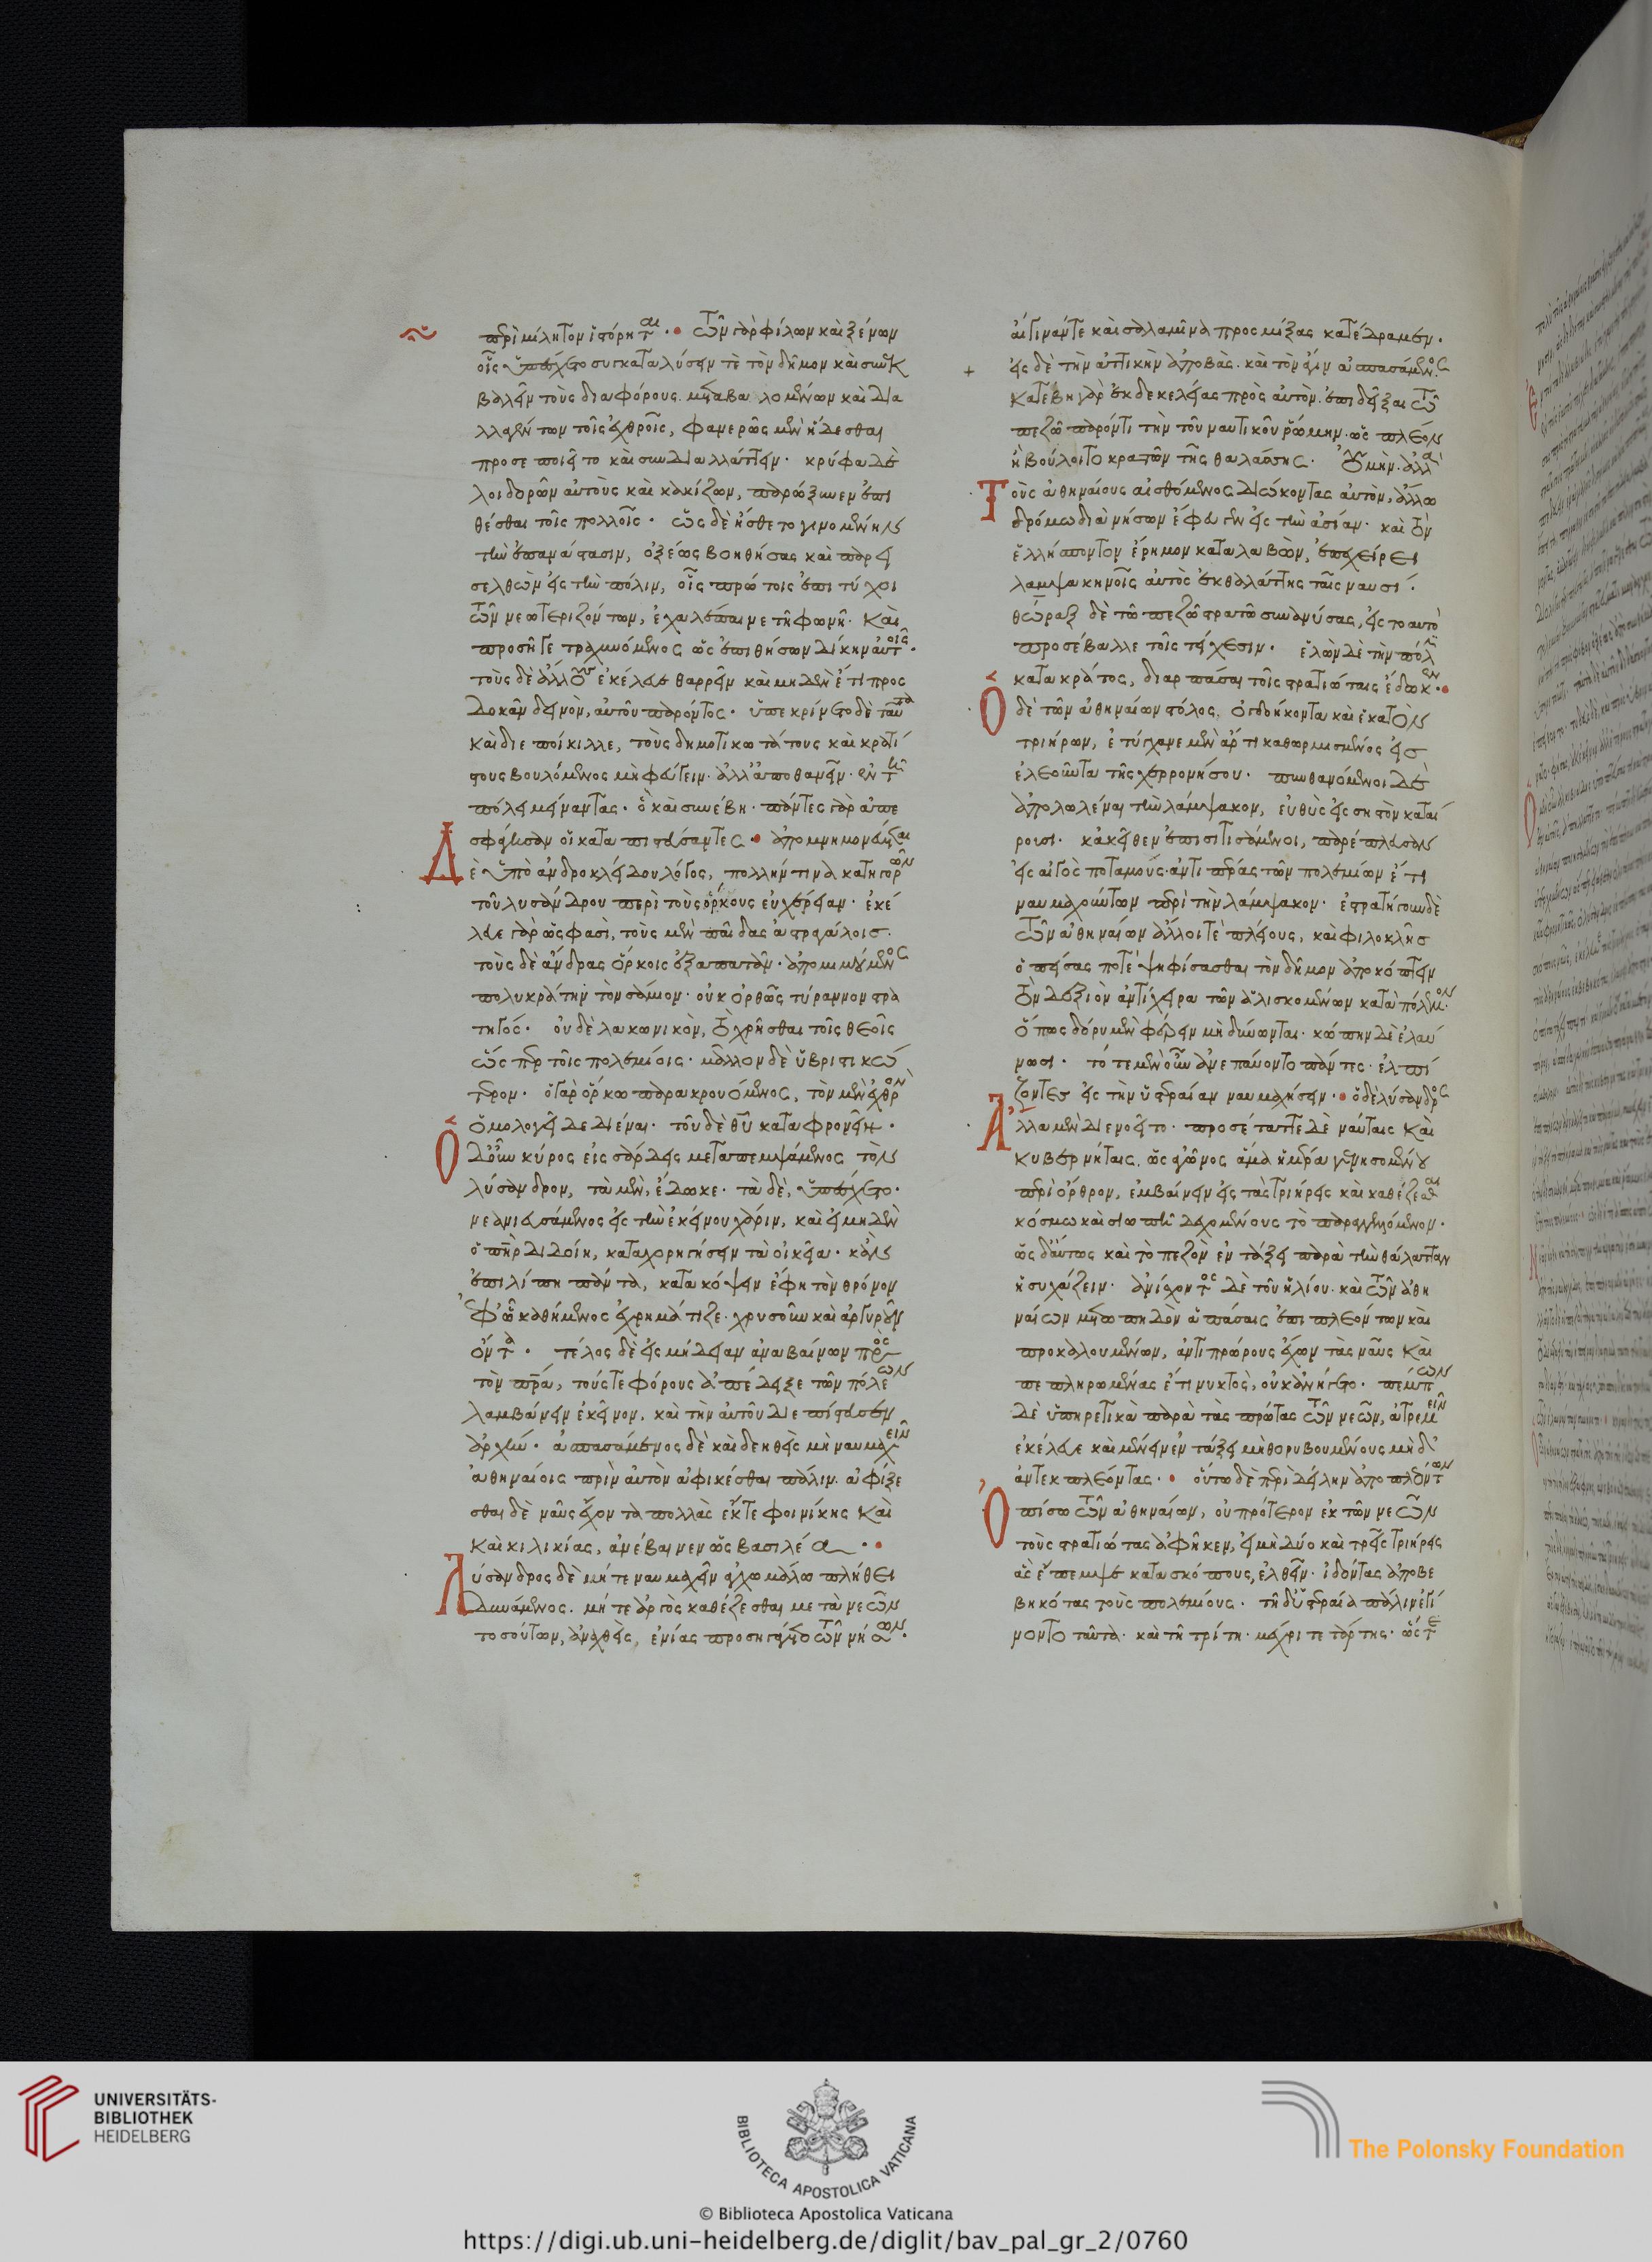 περὶ μίλητον ἱστόρηται· τῶν γὰρ φίλων καὶ ξένων
οἷς ὑπέσχετο συγκαταλύσειν τὲ τὸν δῆμον καὶ συνεκ
βαλεῖν τοὺς διαφόρους. μεταβαλομένων καὶ δια
λλαγέντων τοῖς ἐχθροῖς, φανερῶς μὲν ἥδεσθαι
προσεποιεῖτο καὶ συνδιαλλάττειν· κρύφα δὲ
λοιδορῶν αὐτοὺς καὶ κακίζων, παρώξυνεν ἐπι
θέσθαι τοῖς πολλοῖς· ὡς δὲ ἤσθετο γινομένην
τὴν ἐπανάστασιν, ὀξέως βοηθήσας καὶ παρει
σελθὼν εἰς τὴν πόλιν, οἷς πρώτοις ἐπιτύχοι
τῶν νεωτεριζόντων, ἐχαλέπαινε τῇ φωνῇ· καὶ
προσῆγε τραχυνόμενος ὡς ἐπιθήσων δίκην αὐτοῖς·
τοὺς δὲ ἄλλους ἐκέλευε θαρρεῖν καὶ μηδὲν ἔτι προς
δοκᾶν δεινὸν, αὐτοῦ παρόντος· ὑπεκρίνετο δὲ ταῦτα
καὶ διεποίκιλλε, τοὺς δημοτικωτάτους καὶ κρατί
στους βουλόμενος μὴ φεύγειν· ἀλλ' ἀποθανεῖν· ἐν τῇ
πόλει μείναντας· ὃ καὶ συνέβη· πάντες γὰρ ἀπε
σφάγησαν οἱ καταπιστεύσαντες· ἀπομνημονεύεται
Δὲ ὑπὸ ἀνδροκλείδου λόγος, πολλήν τινα κατηγορῶν
τοῦ λυσάνδρου περὶ τοὺς ὅρκους εὐχέρειαν· ἐκέ
λευε γὰρ ὥς φασὶ, τοὺς μὲν παῖδας ἀστραγάλοις·
τοὺς δὲ ἄνδρας ὅρκοις ἐξαπατᾶν· ἀπομιμούμενος
πολυκράτην τὸν σάμιον· οὐκ ὀρθῶς τύραννον στρα
τηγός· οὐδὲ λακωνικὸν, τὸ χρῆσθαι τοῖς θεοῖς
ὥσπερ τοῖς πολεμίοις· μᾶλλον δὲ ὑβριστικώ
τερον· ὁ γὰρ ὅρκω παρακρουόμενος, τὸν μὲν ἐχθρὸν
ὁμολογεῖ δεδιέναι· τοῦ δὲ θεοῦ καταφρονεῖν·
Ὁ δ' οὖν κύρος εἰς σάρδεις μεταπεμψάμενος τὸν
λύσανδρον, τὰ μὲν, ἔδωκε· τὰ δὲ, ὑπέσχετο·
νεανιευσάμενος εἰς τὴν ἐκείνου χάριν, καὶ εἰ μηδὲν
ὁ πατὴρ διδοίη, καταχορηγήσειν τὰ οἰκεῖα· κἂν
ἐπιλίπη πάντα, κατακόψειν ἔφη τὸν θρόνον
ἐφ' ὧ καθήμενος ἐχρημάτιζε· χρυσοῦν καὶ ἀργυροῦν
ὄντα· τέλος δὲ εἰς μήδειαν ἀναβαίνων πρὸς
τὸν πατέρα, τούς τε φόρους ἀπέδειξε τῶν πόλεων
λαμβάνειν ἐκεῖνον, καὶ τὴν αὐτοῦ διεπίστευσεν
ἀρχήν· ἀσπασάμενος δὲ καὶ δεηθεὶς μὴ ναυμαχεῖν
ἀθηναίοις πρὶν αὐτὸν ἀφικέσθαι πάλιν· ἀφίξε
σθαι δὲ ναῦς ἔχοντα πολλὰς ἔκ τε φοινίκης καὶ
καὶ κιλικίας, ἀνέβαινεν ὡς βασιλέα·
Λύσανδρος δὲ μήτε ναυμαχεῖν ἀγχωμάλω πλήθει
δυνάμενος· μήτε ἀργὸς καθέζεσθαι μετὰ νεῶν
τοσούτων, ἀναχθεὶς, ἐνίας προσηγάγετο τῶν νήσων·
αἴγιναν τε καὶ σαλαμῖνα προσμίξας κατέδραμεν·
εἰς δὲ τὴν ἀττικὴν ἀποβὰς· καὶ τὸν ἆγιν ἀσπασάμενος·
κατέβη γὰρ ἐκ δεκελείας πρὸς αὐτὸν· ἐπιδεῖξαι τῶ
πεζῶ παρόντι τὴν τοῦ ναυτικοῦ ῥώμην· ὡς πλέον
ἢ βούλοιτο κρατῶν τῆς θαλάσσης· Οὐ μὴν· ἀλλὰ
Τοὺς ἀθηναίους αἰσθόμενος διώκοντας αὐτὸν, ἄλλω
δρόμω διὰ νήσων ἔφυγεν εἰς τὴν ἀσίαν· καὶ τὸν
ἑλλήσποντον ἔρημον καταλαβὼν, ἐπεχείρει
λαμψακηνοῖς αὐτὸς ἐκ θαλάττης ταῖς ναυσί·
θώραξ δὲ τῶ πεζῶ στρατῶ συνανύσας, εἰς τὸ αυτὸ
προσέβαλλε τοῖς τείχεσιν· ἑλὼν δὲ τὴν πόλιν
κατακράτος, διαρπάσαι τοῖς στρατιώταις ἔδωκεν·
Ὁ δὲ τῶν ἀθηναίων στόλος, ὀγδοήκοντα καὶ ἑκατὸν
τριήρων, ἐτύγχανε μὲν ἄρτι καθωρμισμένος εἰς
ἐλεοῦντα τῆς χερρονήσου· πυνθανόμενοι δὲ
ἀπολωλέναι τὴν λάμψακον, εὐθὺς εἰς σηστὸν καταί
ρουσι· κἀκεῖθεν ἐπισιτισάμενοι, παρέπλευσαν
εἰς αἰγὸς ποταμούς· ἀντιπέρας τῶν πολεμίων ἔτι
ναυλοχούντων περὶ τὴν λάμψακον· ἐστρατήγουν δὲ
τῶν ἀθηναίων ἄλλοι τὲ πλείους, καὶ φιλοκλῆς
ὁ πείσας ποτὲ ψηφίσασθαι τὸν δῆμον ἀποκόπτειν
τὸν δεξιὸν ἀντίχειρα τῶν ἁλισκομένων κατὰ πόλεμον·
ὅπως δόρυ μὲν φέρειν μὴ δύνωνται· κώπην δὲ ἐλαύ
νωσι· τότε μὲν οὖν ἀνεπαύοντο πάντες· ἐλπί
ζοντες εἰς τὴν ὑστεραίαν ναυμαχήσειν· ὁ δὲ λύσανδρος
Ἄλλα μὲν διενοεῖτο· προσέταττε δὲ ναύταις καὶ
κυβερνήταις, ὡς ἀγῶνος ἅμα ἡμέρα γενησομένου
περὶ ὄρθρον, ἐμβαίνειν εἰς τὰς τριήρεις καὶ καθέζεσθαι
κόσμω καὶ σιωπῆ δεχομένους τὸ παραγγελόμενον·
ὡς δ' αύτως καὶ τὸ πεζὸν ἐν τάξει παρὰ τὴν θάλατταν
ἡσυχάζειν· ἀνίσχοντος δὲ τοῦ ἡλίου· καὶ τῶν ἀθη
ναίων μετωπηδὸν ἁπάσαις ἐπιπλεόντων καὶ
προκαλουμένων, ἀντιπρώρους ἔχων τὰς ναῦς καὶ
πεπληρωμένας ἔτι νυκτὸς, οὐκ ἀνήγετο· πέμπων
δὲ ὑπηρετικὰ παρὰ τὰς πρώτας τῶν νεῶν, ἀτρεμεῖν
ἐκέλευε καὶ μένειν ἐν τάξει μὴ θορυβουμένους μὴδ'
ἀντεκπλέοντας· οὕτω δὲ περὶ δείλην ἀποπλεόντων
Ὀπίσω τῶν ἀθηναίων, οὐ πρότερον ἐκ τῶν νεῶν
τοὺς στρατιώτας ἀφῆκεν, εἰ μὴ δύο καὶ τρεῖς τριήρεις
ἃς ἔπεμψε κατασκόπους, ἐλθεῖν· ἰδόντας ἀποβε
βηκότας τοὺς πολεμίους· τῆ δ' ὑστεραία πάλιν ἐγί
νοντο ταῦτα· καὶ τῆ τρίτη· μέχρι τετάρτης· ὥστε
UNIVERSITÄTS-
BIBLIOTHEK
HEIDELBERG
BIBLIOTECA APOSTOLICA VATICANA
The Polonsky Foundation
© Biblioteca Apostolica Vaticana
https://digi.ub.uni-heidelberg.de/diglit/bav_pal_gr_2/0760